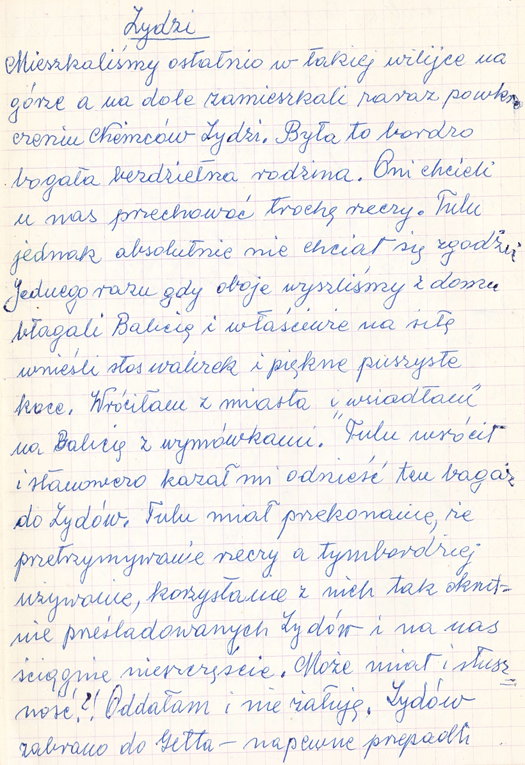 Żydzi
Mieszkaliśmy ostatnio w takiej wilijce na
górze a na dole zamieszkali zaraz po wkro
czeniu Niemców Żydzi. Była to bardzo
bogata bezdzietna rodzina. Oni chcieli
u nas przechować trochę rzeczy. Tulu
jednak absolutnie nie chciał się zgodzić
Jednego razu gdy oboje wyszliśmy z domu
błagali Babcię i właściwie na siłę
wnieśli stos walizek i piękne puszyste
koce. Wróciłam z miasta i „wsiadłam"
na Babcię z wymówkami. Tulu wrócił
i stanowczo kazał mi odnieść ten bagaż
do Żydów. Tulu miał przekonanie, że
przetrzymywanie rzeczy a tymbardziej
używanie, korzystanie z nich tak okrut=
nie prześladowanych Żydów i na nas
ściągnie nieszczęście. Może miał i słusz=
ność?! Oddałam i nie żałuję. Żydów
zabrano do Getta – napewne przepadli